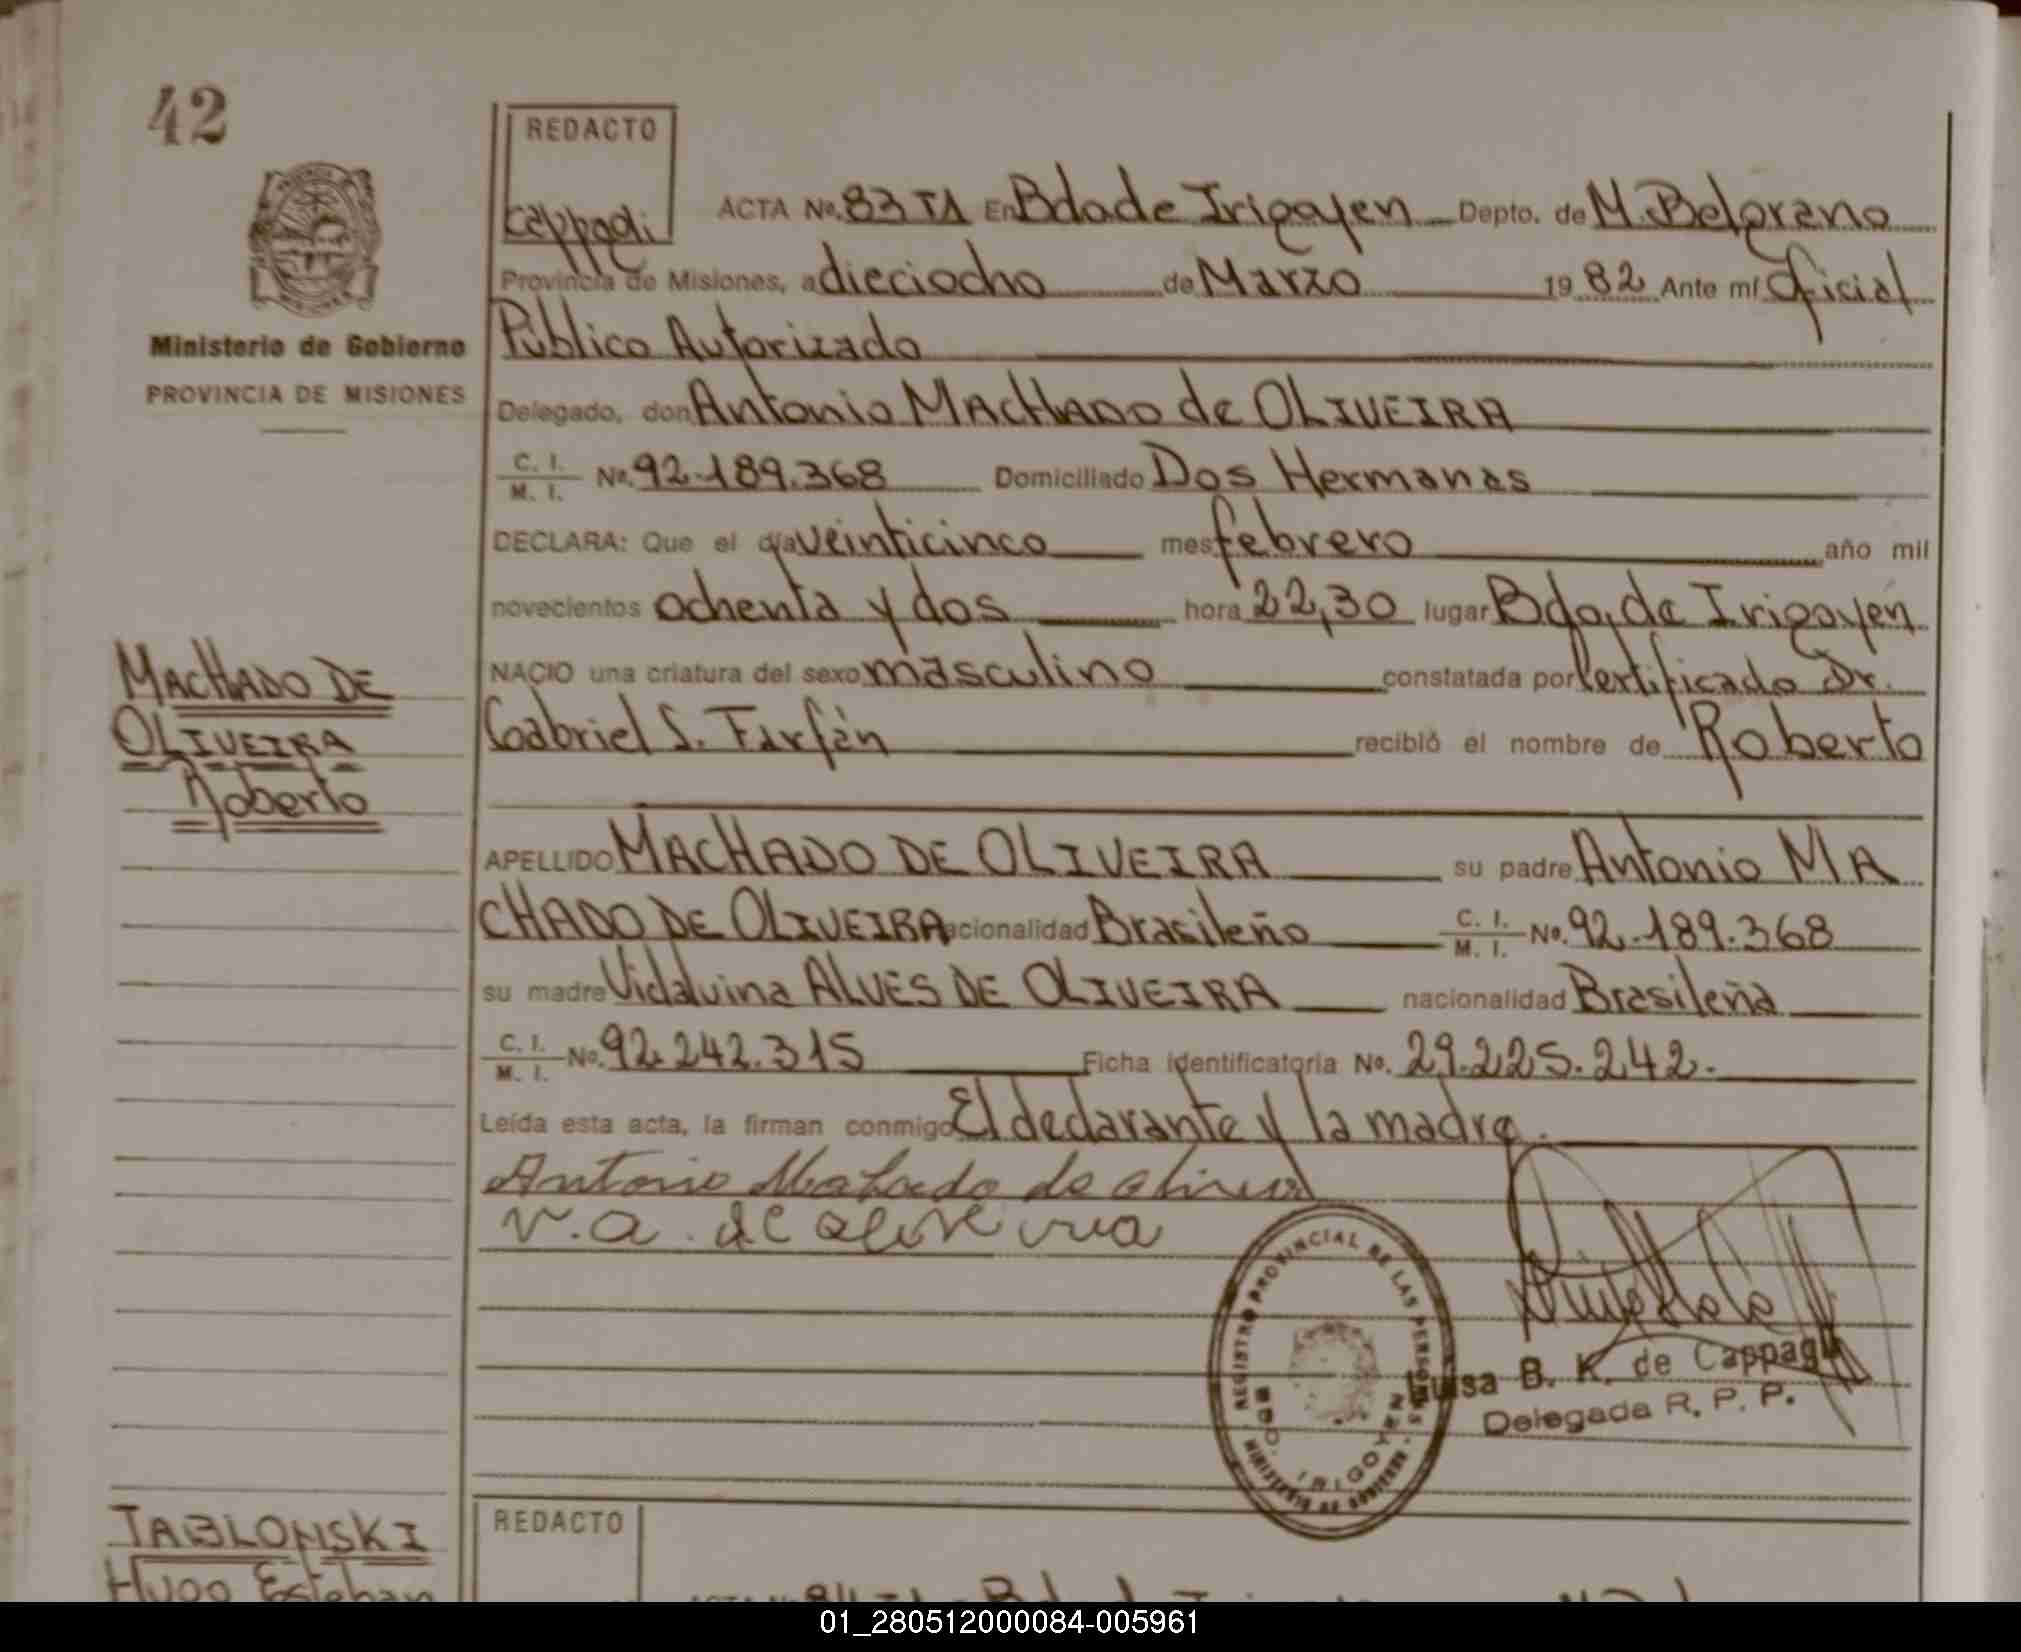 42
REDACTO
Cappagli
ACTA No. 83 T1 En Bdo de Irigoyen Depto. de M. Belgrano
Provincia de Misiones, a dieciocho de Marzo 19 82 Ante mí Oficial
Ministerio de Gobierno
PROVINCIA DE MISIONES
Público Autorizado
Delegado, don Antonio MACHADO de OLIVEIRA
C. I. M. I. No. 92.189.368 Domiciliado Dos Hermanas
DECLARA: Que el día veinticinco mes febrero año mil
novecientos ochenta y dos hora 22,30 lugar Bdo. de Irigoyen
NACIO una criatura del sexo masculino constatada por Certificado Dr.
Gabriel S. Farfán recibió el nombre de Roberto
MACHADO DE
OLIVEIRA
Roberto
APELLIDO MACHADO DE OLIVEIRA su padre Antonio MA
CHADO DE OLIVEIRA nacionalidad Brasileño C. I. M. I. No. 92.189.368
su madre Vidalvina ALVES DE OLIVEIRA nacionalidad Brasileña
C. I. M. I. No. 92.242.315 Ficha identificatoria No. 29.225.242.
Leída esta acta, la firman conmigo El declarante y la madre.
Antonio Machado de
v. a. de
REGISTRO PROVINCIAL DE LAS PERSONAS
BDO. IRIGOYEN
Luisa B. K. de Cappagli
Delegada R. P. P.
JABLONSKI
Hugo Esteban
REDACTO
01_280512000084-005961